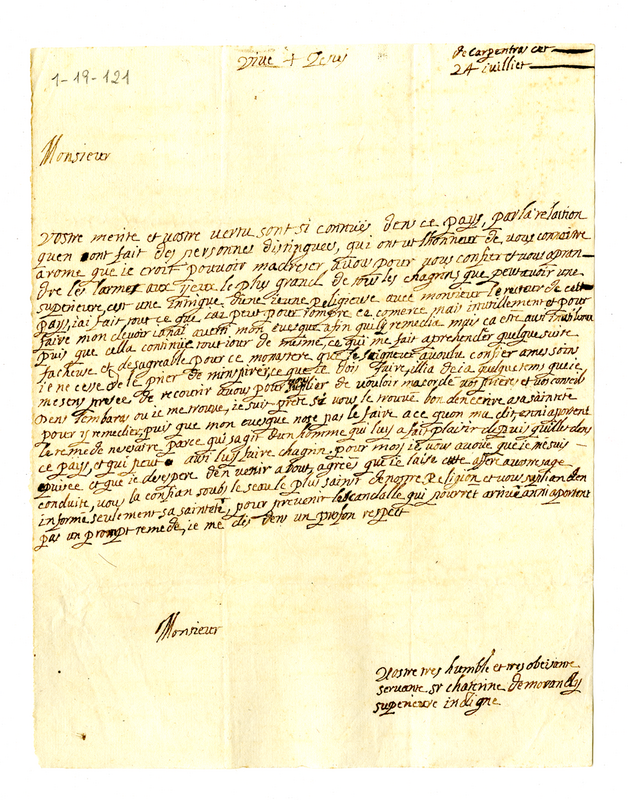 1-19-121
Vive + Jesus
de Carpentras cet
24 iuillet
Monsieur
Vostre merite et vostre vertu sont si connues dens ce pays, par la relation
quen ont fait des personnes distinguées, qui ont ut lhonneur de vous connoitre
a rome que ie croit pouvoir madreser a vous pour vous confier et vous apran
dre les larmes aux yeux le plus grand de tous les chagrins que peut avoir une
superieure, cest une intrigue dune ieune religieuse avec monsieur le de cett
pays, iai fait tout ce que iai peut pour rompre ce comerce mais inutillement et pour
faire mon devoir iai averti mon evesque afin quil y remedia mais ca esté
puis que cella continue tout iour de meme, ce qui me fait aprehender quelque suite
facheuse et desagreable pour ce monastere que le seigneur a voulu confier a mes soins
ie ne cesse de le prier de minspirer ce que ie dois faire, il ia deia quelque tems que ie
me sens presée de recourir a vous pour vous suplier de vouloir macorde vos prieres et vos conseils
dens lembaras ou ie me trouve, ie suis prete si vous le trouve bon den ecrire a sa sainteté
pour y remedier, puis que mon evesque nose pas le faire a ce quon ma dit, en ni aportent
le remede nesesaire parce quil sagit dun homme qui luy a fait plaisir depuis quil est dens
ce pays, et qui peut aussi luy faire chagrin. pour moi ie vous avoue que ie me suis
epuisée et que ie desespere den venir a bout, agrees que ie laise cette affere a vostre sage
conduite, vous la confian soubs le seau le plus saint de nostre Religion et vous suplian den
informé seulement sa sainteté, pour prevenir le scandalle qui pourret arrivé an ni aportent
pas un prompt remede, ie me dis dens un profon respect
Monsieur
Vostre tres humble et tres obeisante
servante sr chaterine de morandy
superieure indigne